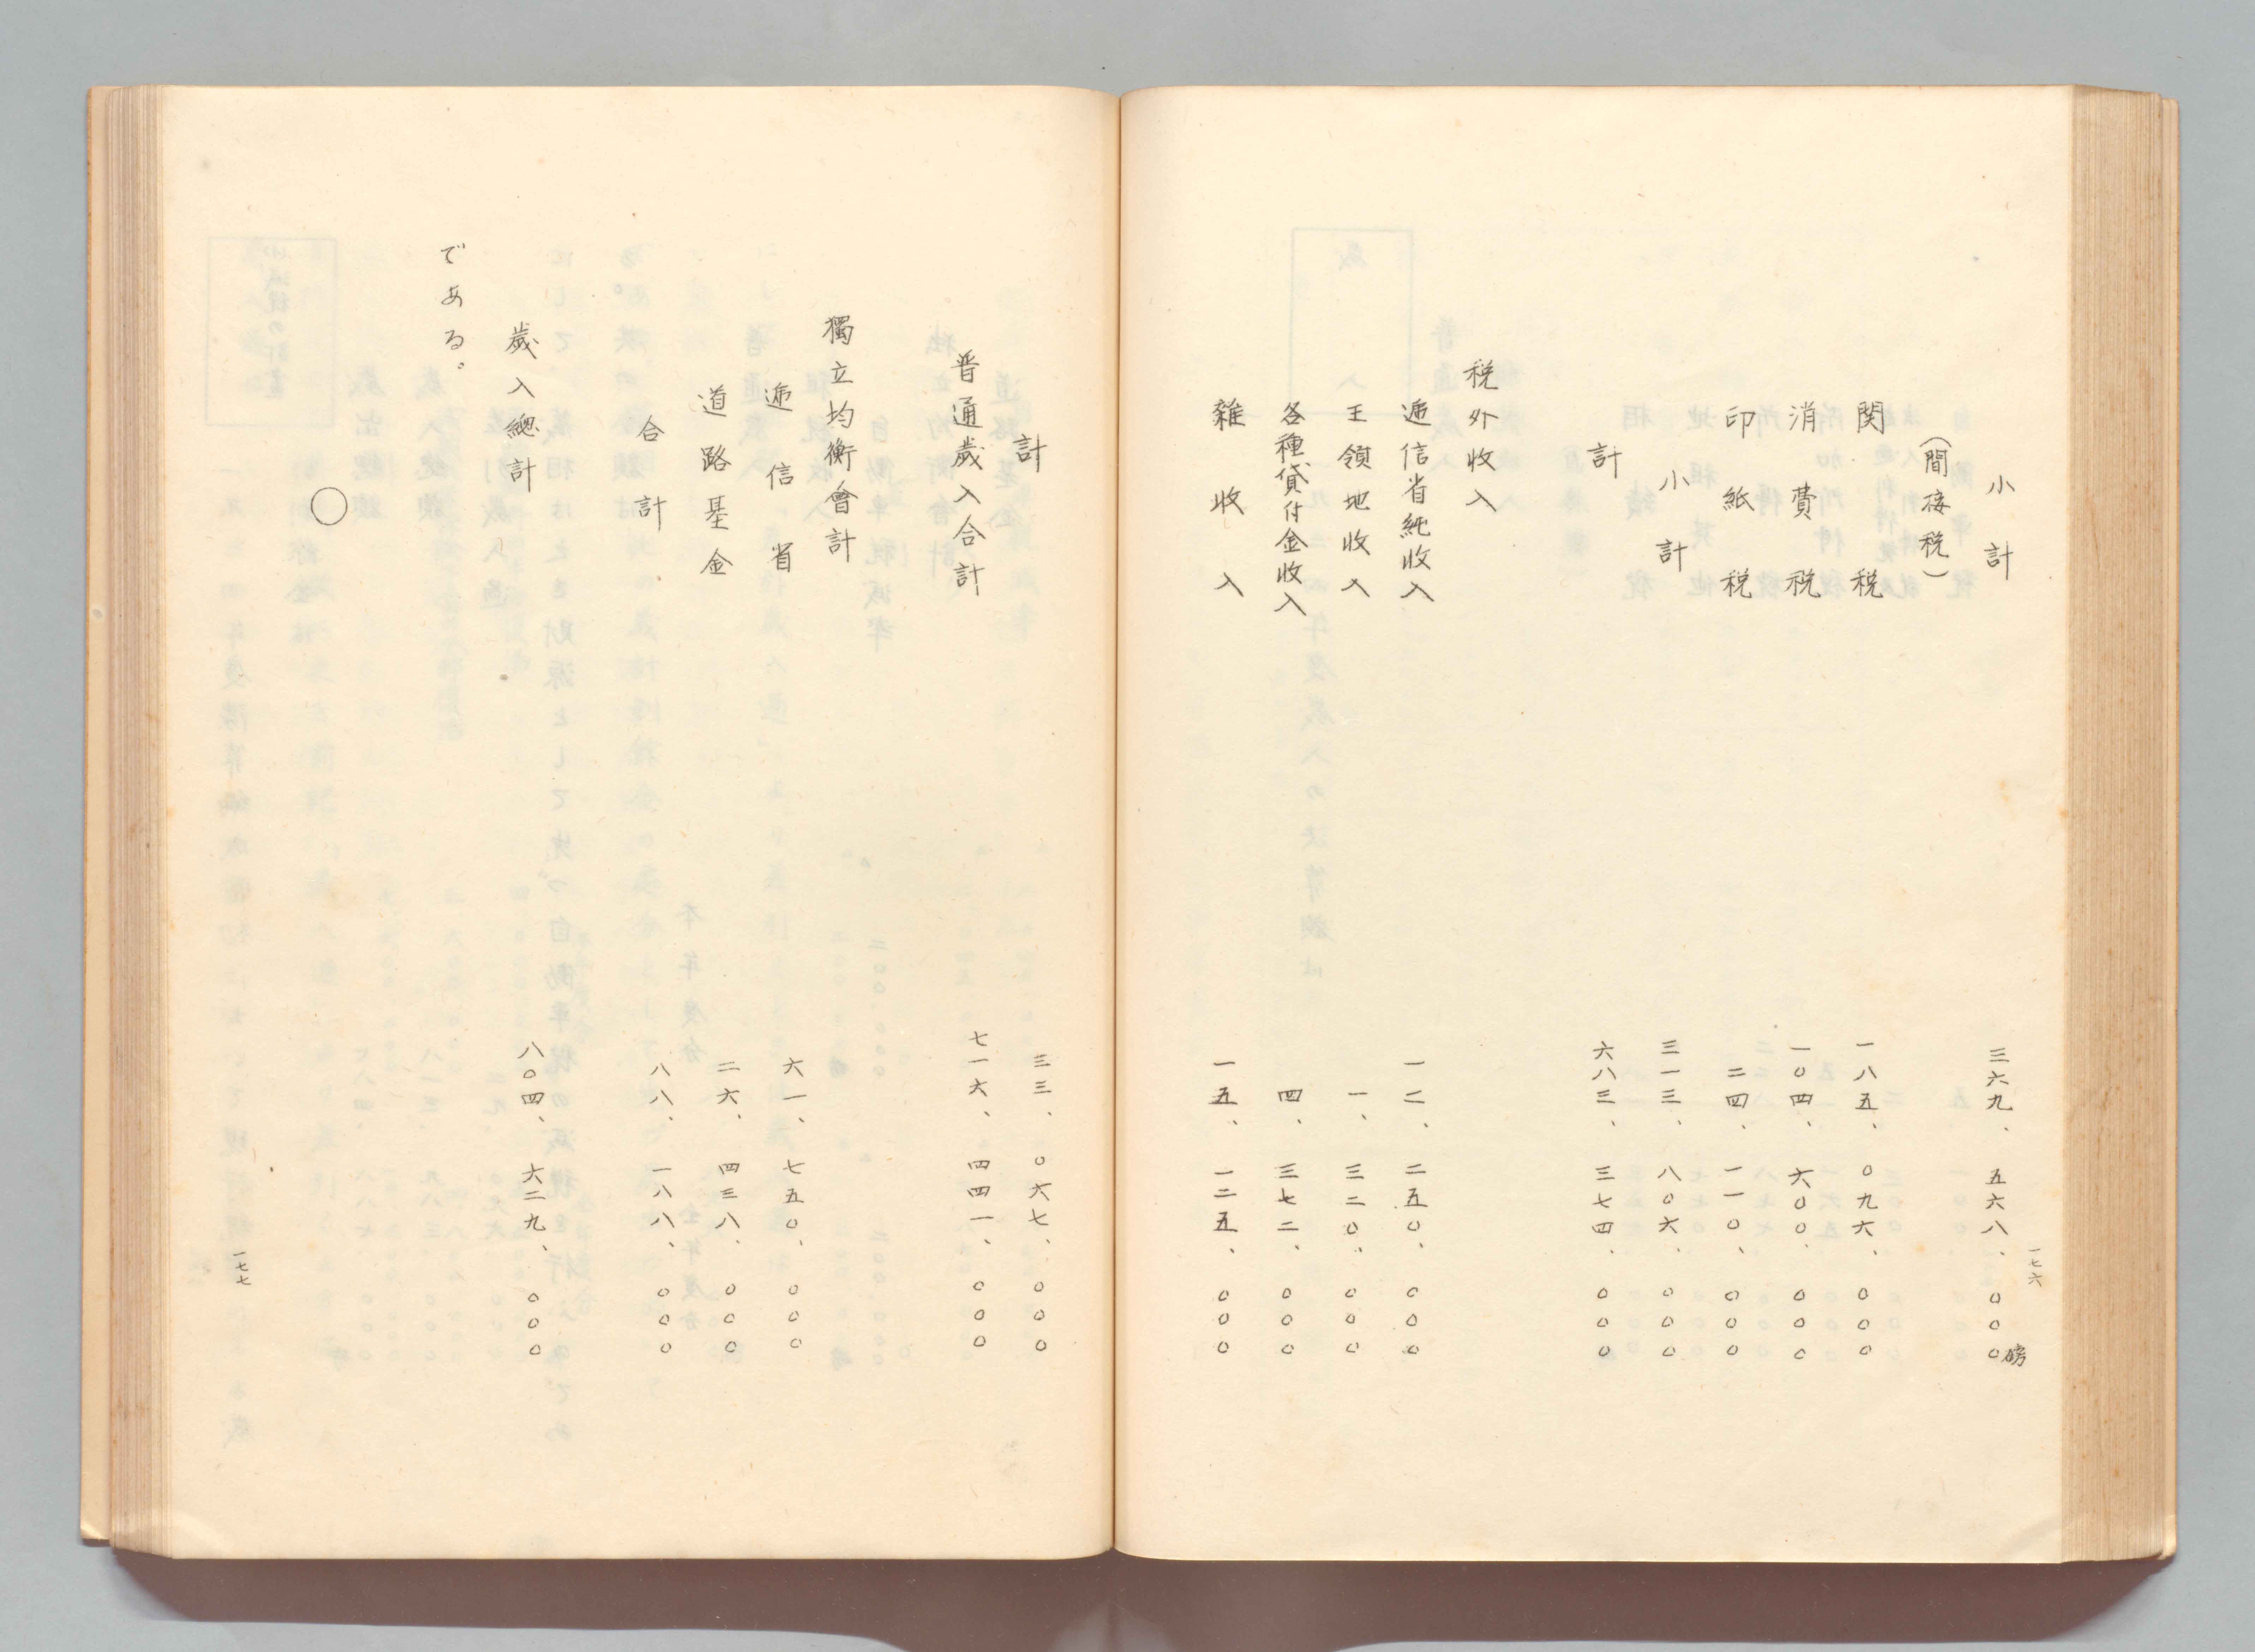 一七六
小計 三六九、五六八、〇〇〇磅
(間接税)
関税 一八五、〇九六、〇〇〇
消費税 一〇四、六〇〇、〇〇〇
印紙税 二四、一一〇、〇〇〇
小計 三一三、八〇六、〇〇〇
計 六八三、三七四、〇〇〇
税外收入
逓信省純收入 一二、二五〇、〇〇〇
王領地收入 一、三二〇、〇〇〇
各種貸付金收入 四、三七二、〇〇〇
雜收入 一五、一二五、〇〇〇
計 三三、〇六七、〇〇〇
普通歳入合計 七一六、四四一、〇〇〇
獨立均衡會計
逓信省 六一、七五〇、〇〇〇
道路基金 二六、四三八、〇〇〇
合計 八八、一八八、〇〇〇
歳入總計 八〇四、六二九、〇〇〇
である。
〇
一七七